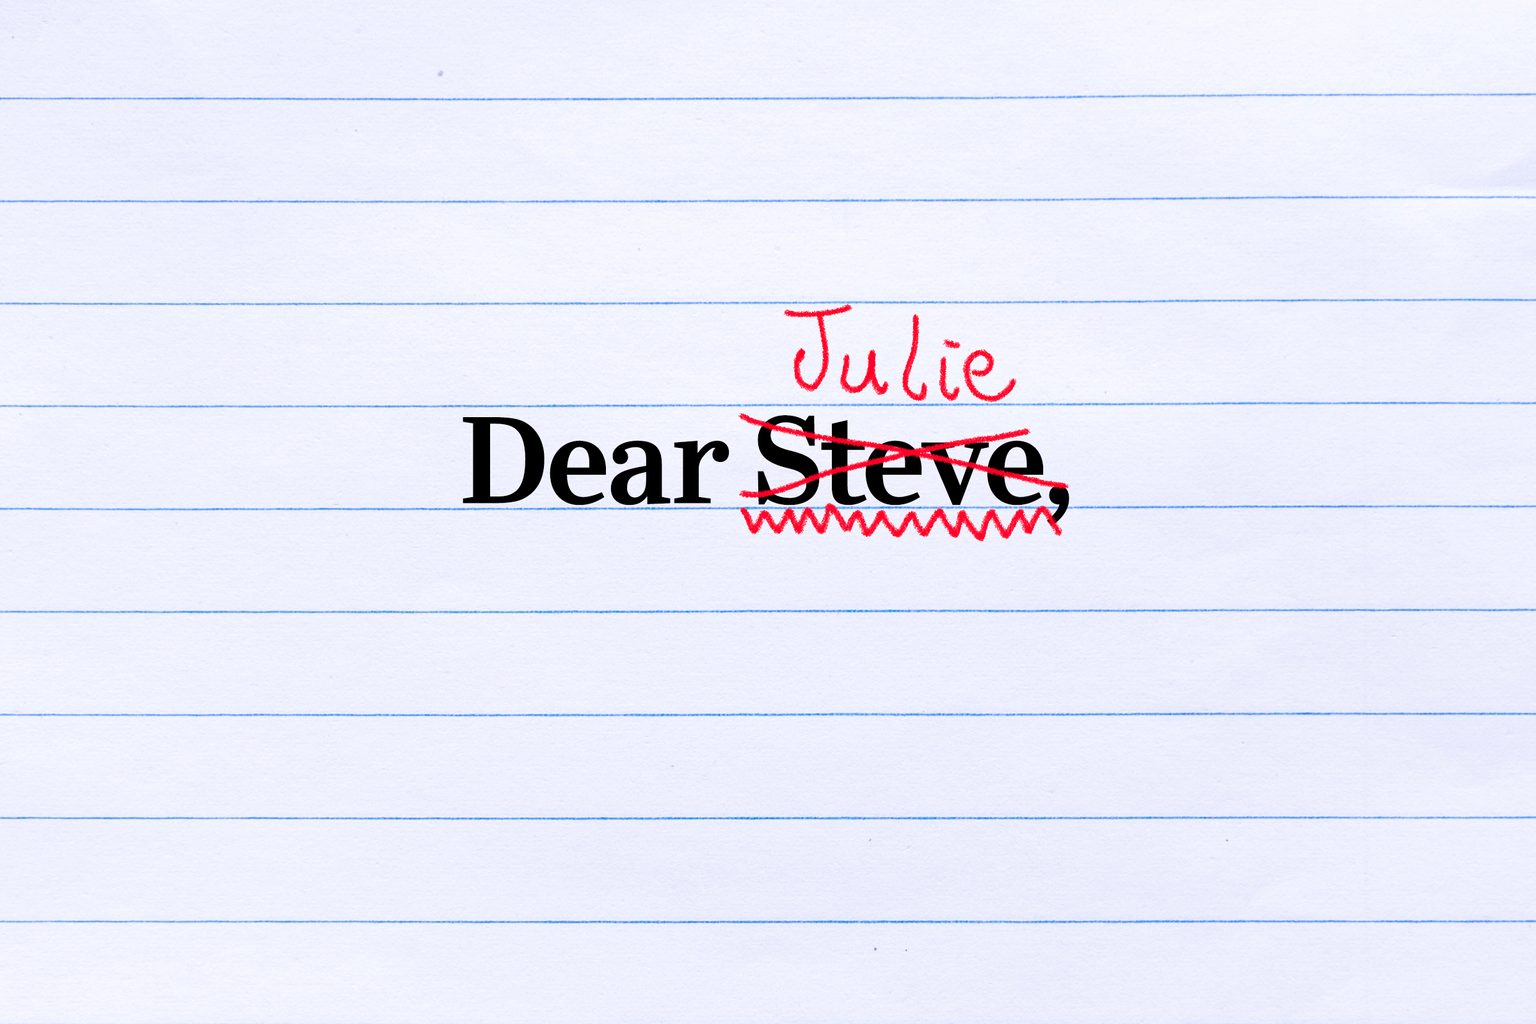 Julie
Dear Steve,